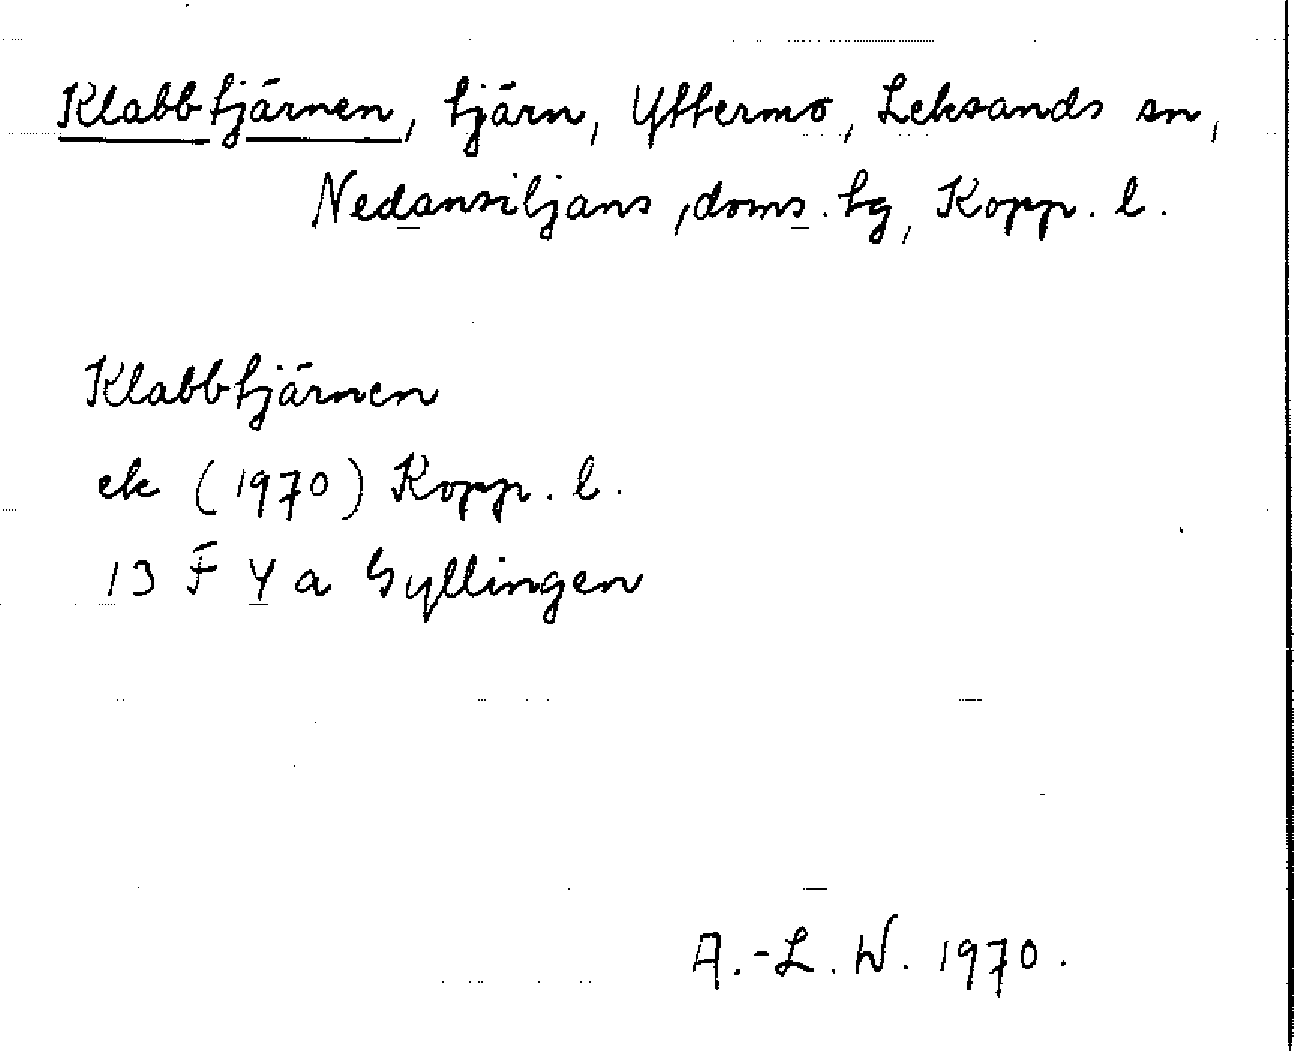 Klabbtjärnen, tjärn, Yttermo, Leksands sn,
Nedansiljans, doms. tg, Kopp. l.
Klabbtjärnen
ek (1970) Kopp. l.
13 F Y a Gyllingen
A.-L. W. 1970.